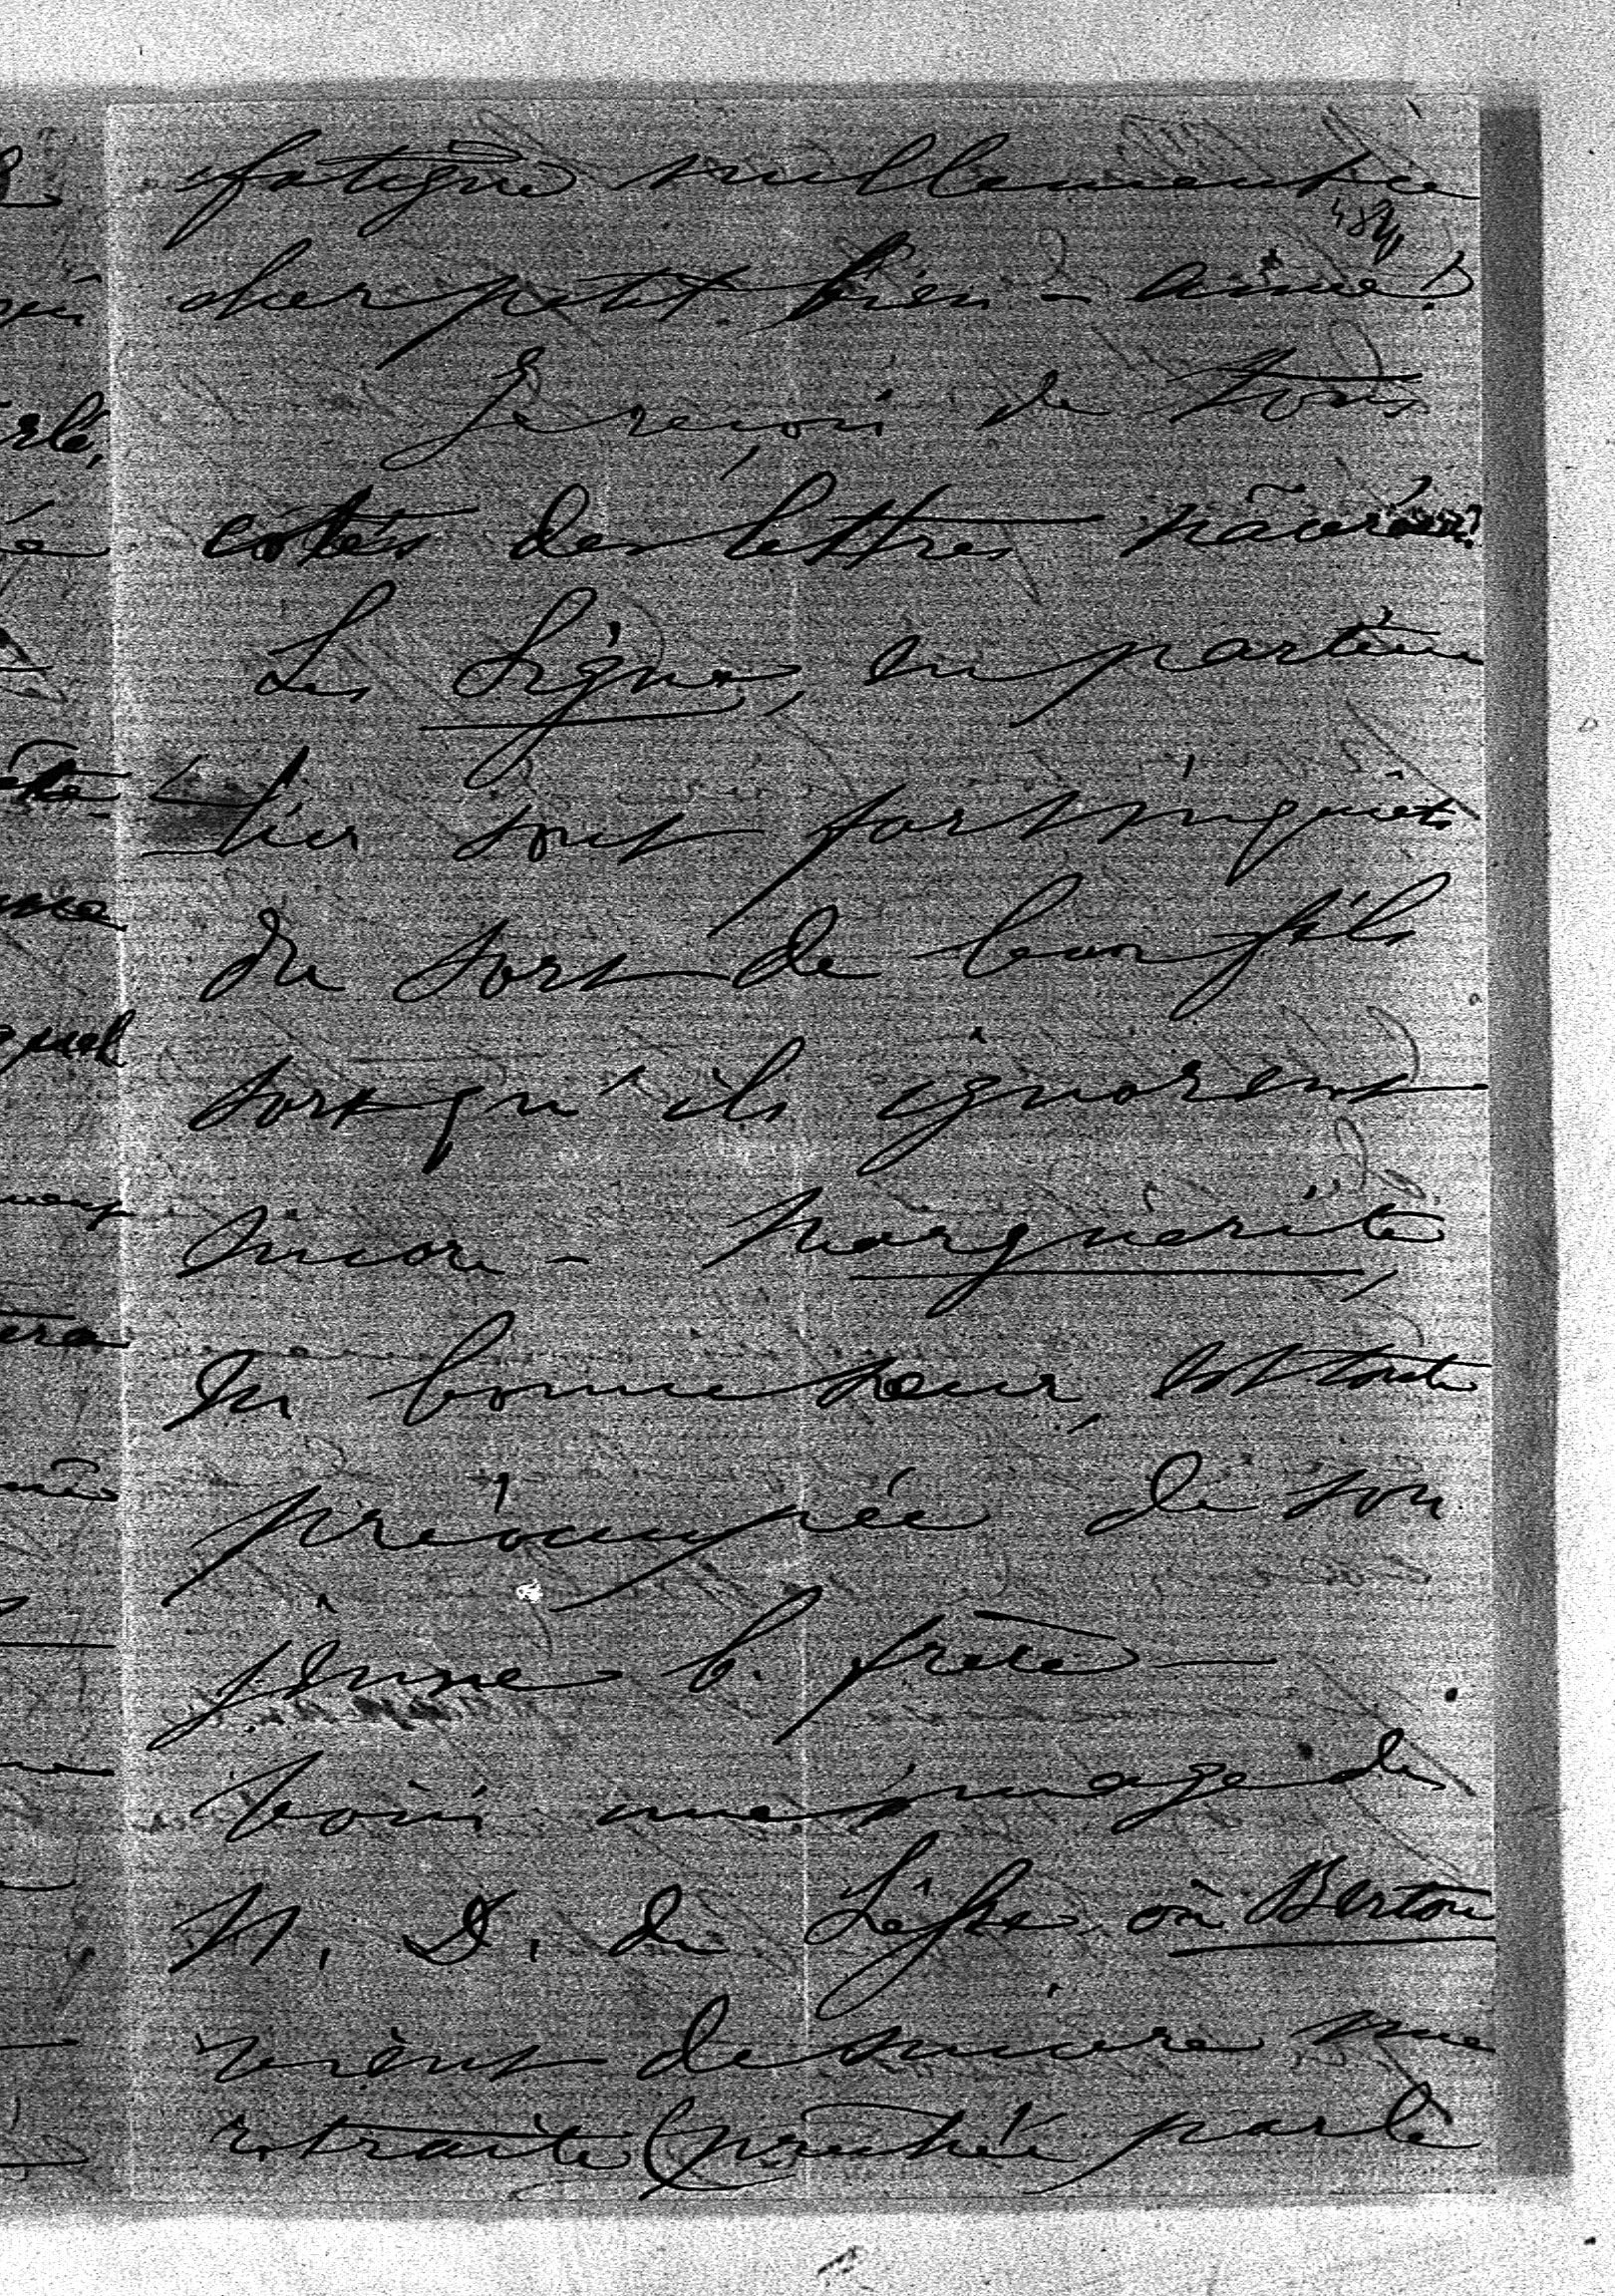 fatigué nullement ce
484
cher petit bien-aimé!
Je reçois de tous
côtés des lettres navrées!
Les Ligne, en particu
lier sont fort inquiets
du sort de leur fils
sort qu'ils ignorent
encore - Marguerite,
en bonne sœur, est toute
préoccupée de son
jeune b. frère —
Voici une image de
N. D. de Liesse, où Berton
vient de suivre une
retraite (prêchée par le